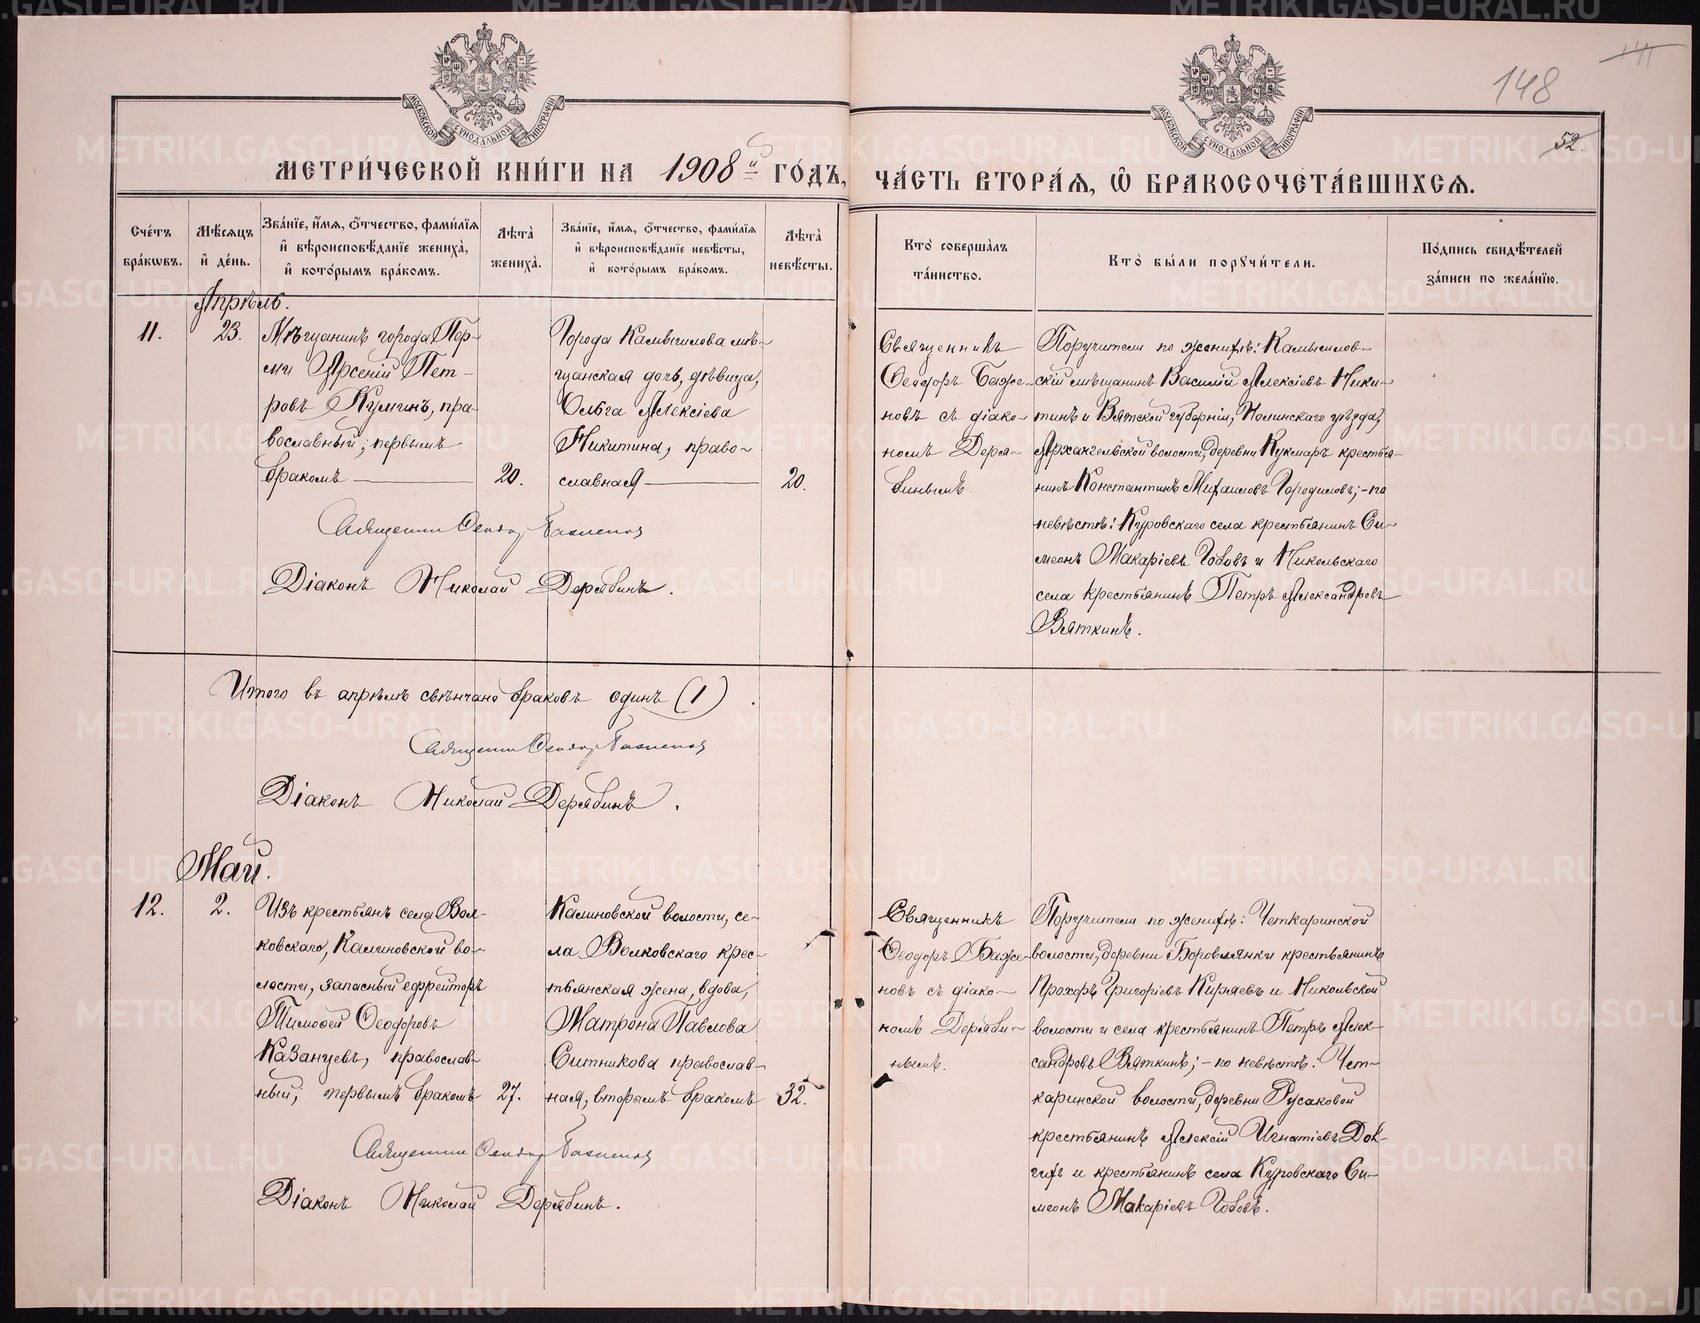 148
52.
МЕТРИ́ЧЕСКОЙ КНИ́ГИ НА 1908й ГО́ДЪ, ЧА́СТЬ ВТОРА́Я, Ѡ҆ БРАКОСОЧЕТА́ВШИХСЯ.
Сче́тъ бра́кѡвъ.
Мѣ́сяцъ и҆ де́нь.
Зва́нїе, и҆́мя, о҆́тчество, фами́лїя
и҆ вѣроисповѣ́данїе жениха̀,
и҆ кото́рымъ бра́комъ.
Лѣта̀ жениха̀.
Зва́нїе, и҆́мя, о҆́тчество, фами́лїя
и҆ вѣроисповѣ́данїе невѣ́сты,
и҆ кото́рымъ бра́комъ.
Лѣта̀ невѣ́сты.
Кто̀ соверша́лъ
та́инство.
Кто̀ бы́ли порꙋчи́тели.
По́дпись свидѣ́телей
за́писи по жела́нїю.
Апрѣль.
11.
23.
Мѣщанинъ города Пер-
ми Арсеній Пет-
ровъ Кузминъ, пра-
вославный; первымъ
бракомъ
20.
Города Камышлова мѣ-
щанская дочь, дѣвица,
Ольга Алексіева
Никитина, право-
славная
20.
Священникъ
Ѳеодоръ Баже-
новъ съ діако-
номъ Деря-
бинымъ.
Поручители по женихѣ: Камышлов-
скій мѣщанинъ Василій Алексіевъ Ники-
тинъ и Вятской губерніи, Нолинскаго уѣзда,
Архангельской волости, деревни Кукмаръ крестья-
нинъ Константинъ Михаиловъ Городиловъ; - по
невѣстѣ: Куровскаго села крестьянинъ Си-
меонъ Макаріевъ Гобовъ и Никольскаго
села крестьянинъ Петръ Александровъ
Вяткинъ.
Священник Ѳеодор Баженов
Діаконъ Николай Дерябинъ.
Итого въ апрѣлѣ свѣнчано браковъ одинъ (1).
Священник Ѳеодор Баженов
Діаконъ Николай Дерябинъ.
Май.
12.
2.
Изъ крестьянъ села Вол-
ковскаго, Калиновской во-
лости, запасный ефрейторъ
Тимоѳей Ѳеодоровъ
Казанцевъ, православ-
ный; первымъ бракомъ
27.
Калиновской волости, се-
ла Волковскаго крес-
тьянская жена, вдова,
Матрона Павлова
Ситникова православ-
ная, вторымъ бракомъ
32.
Священникъ
Ѳеодоръ Баже-
новъ съ діако-
номъ Деряби-
нымъ.
Поручители по женихѣ: Четкаринской
волости, деревни Боровлянки крестьянинъ
Прохоръ Григоріевъ Киряевъ и Никольской
волости и села крестьянинъ Петръ Алек-
сандровъ Вяткинъ; - по невѣстѣ: Чет-
каринской волости, деревни Русаковой
крестьянинъ Алексій Игнатіевъ Дол-
гихъ и крестьянинъ села Куровскаго Си-
меонъ Макаріевъ Гобовъ.
Священник Ѳеодор Баженов
Діаконъ Николай Дерябинъ.